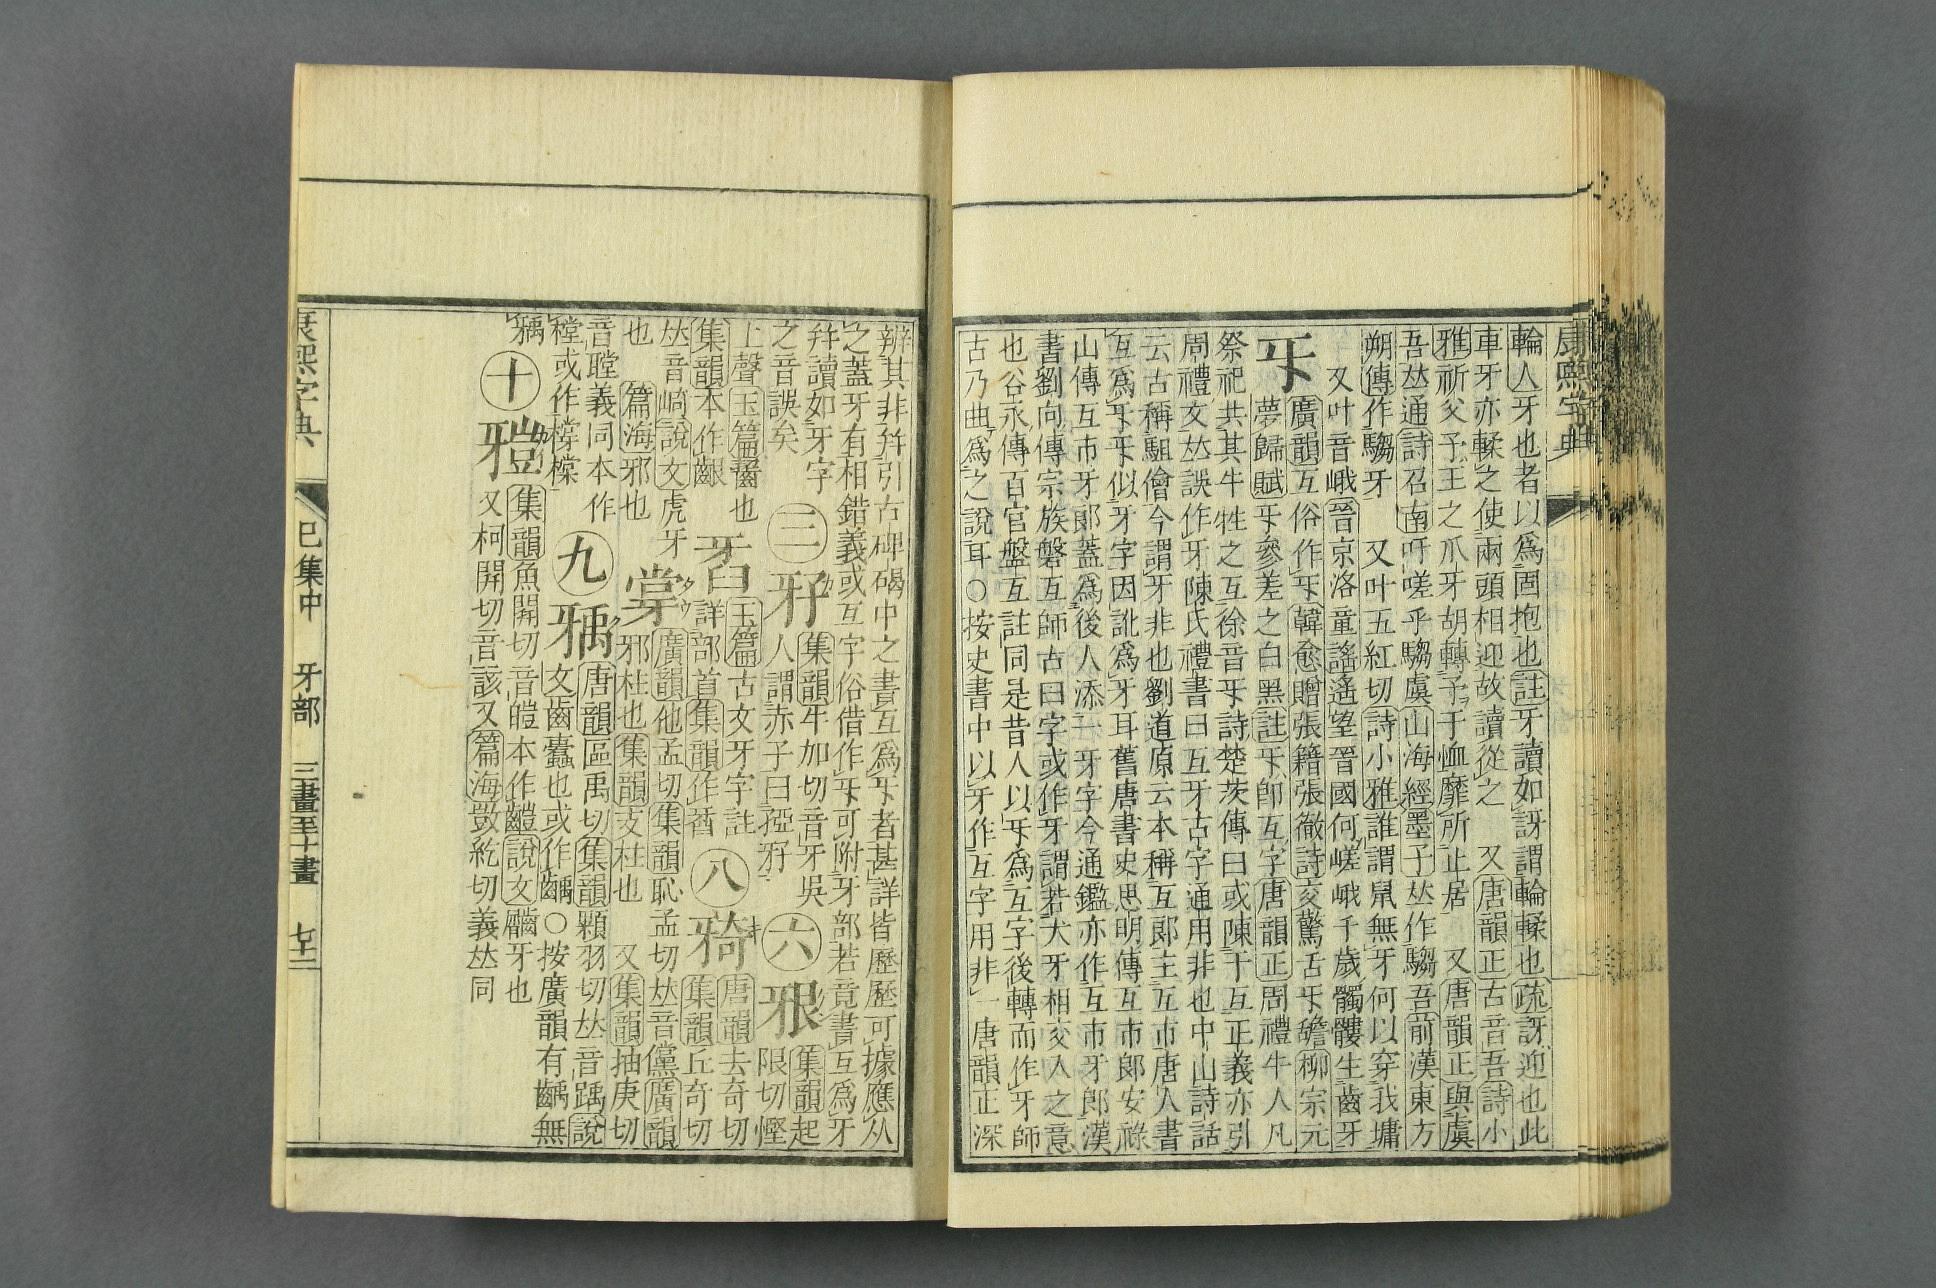 康熙字典
輪人牙也者以爲固抱也註牙讀如訝謂輪輮也疏訝迎也此
車牙亦輮之使兩頭相迎故讀從之 又唐韻正古音吾詩小
雅祈父予王之爪牙胡轉予于恤靡所止居 又唐韻正與虞
吾𠀤通詩召南吁嗟乎騶虞山海經墨子𠀤作騶吾前漢東方
朔傳作騶牙 又叶五紅切詩小雅誰謂鼠無牙何以穿我墉
又叶音峨晉京洛童謠遙望晉國何嵯峨千歲髑髏生齒牙
㸦
廣韻互俗作㸦韓愈贈張籍張徹詩交驚舌㸦柳宗元
夢歸賦㸦參差之白黑註㸦卽互字唐韻正周禮牛人凡
祭祀共其牛牲之互徐音㸦詩楚茨傳曰或陳于互正義亦引
周禮文𠀤誤作牙陳氏禮書曰互牙古字通用非也中山詩話
云古稱駔儈今謂牙非也劉道原云本稱互郎主互市唐人書
互爲㸦㸦似牙字因訛爲牙耳舊唐書史思明傳互市郎安祿
山傳互市牙郎蓋爲後人添一牙字今通鑑亦作互市牙郎漢
書劉向傳宗族磐互師古曰字或作牙謂若犬牙相交入之意
也谷永傳百官盤互註同是昔人以㸦爲互字後轉而作牙師
古乃曲爲之說耳○按史書中以牙作互字用非一唐韻正深
辨其非幷引古碑碣中之書互爲㸦者甚詳皆歷歷可據應从
之蓋牙有相錯義或互字俗借作㸦可附牙部若竟書互爲牙
幷讀如牙字
之音誤矣
三
集韻牛加切音牙吳
人謂赤子曰孲
六
集韻起
限切慳
上聲玉篇齾也
集韻本作齦
玉篇古文牙字註
詳部首集韻作
八
㸨
唐韻去奇切
集韻丘奇切
𠀤音崎說文虎牙
也 篇海邪也
㸩
廣韻他孟切集韻恥孟切𠀤音儻廣韻
邪柱也集韻支柱也 又集韻抽庚切
音瞠義同本作
樘或作橕
九
唐韻區禹切集韻顆羽切𠀤音踽說
文齒蠹也或作齲○按廣韻有齲無
十
集韻魚開切音皚本作說文牙也
又柯開切音該又篇海紇切義𠀤同
康熙字典
巳集中 牙部 三畫至十畫 七十二